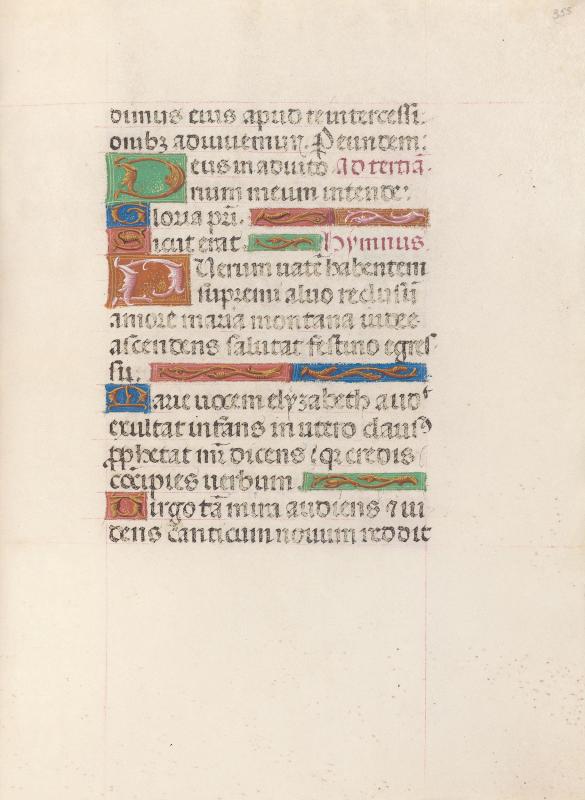 355
dimus eius apud te intercessi:
onibꝫ adiuuemur. Per eundem:
Deus in adiuto Ad tertiã.
rium meum intende:
Gloria pr̃i.
Sicut erat. Hymnus.
Uterum uatẽ habentem
supremi aluo reclusũ
amore maria montana iudee
ascendens salutat festino egres
su.
Maue uocem elyzabeth audᵗ
exultat infans in utero clausꝰ
ꝓphetat m̃ dicens ⁊ q̃ credis
cõcipies uerbum.
Virgo tã mira audiens ⁊ ui
dens canticum nouum reddit